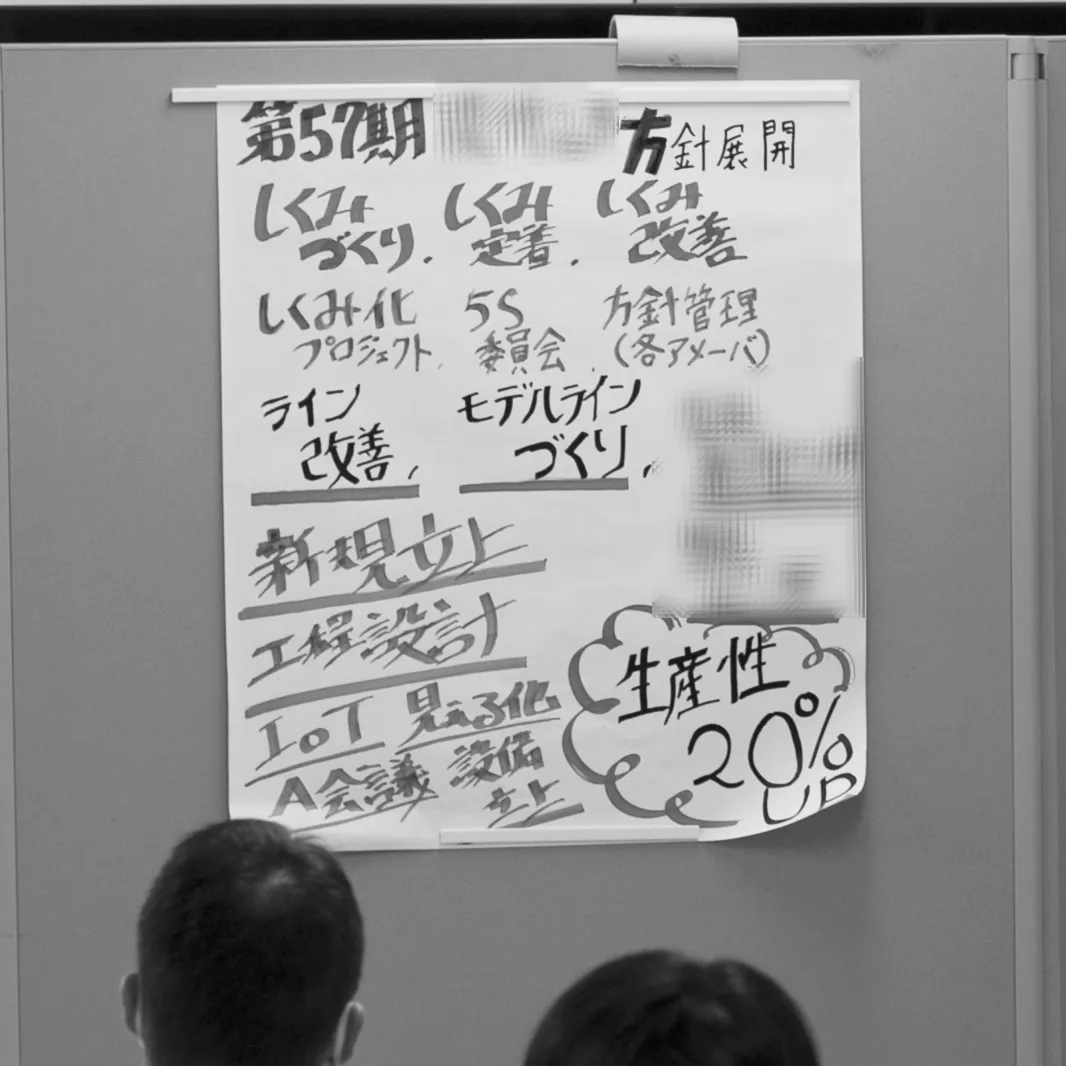 第57期 方針展開
しくみづくり. しくみ定着. しくみ改善
しくみ化プロジェクト. 5S委員会. 方針管理(各アメーバ)
ライン改善, モデルラインづくり,
新規立上
工程設計
IoT 見える化
A会議 設備立上
生産性
20%
UP